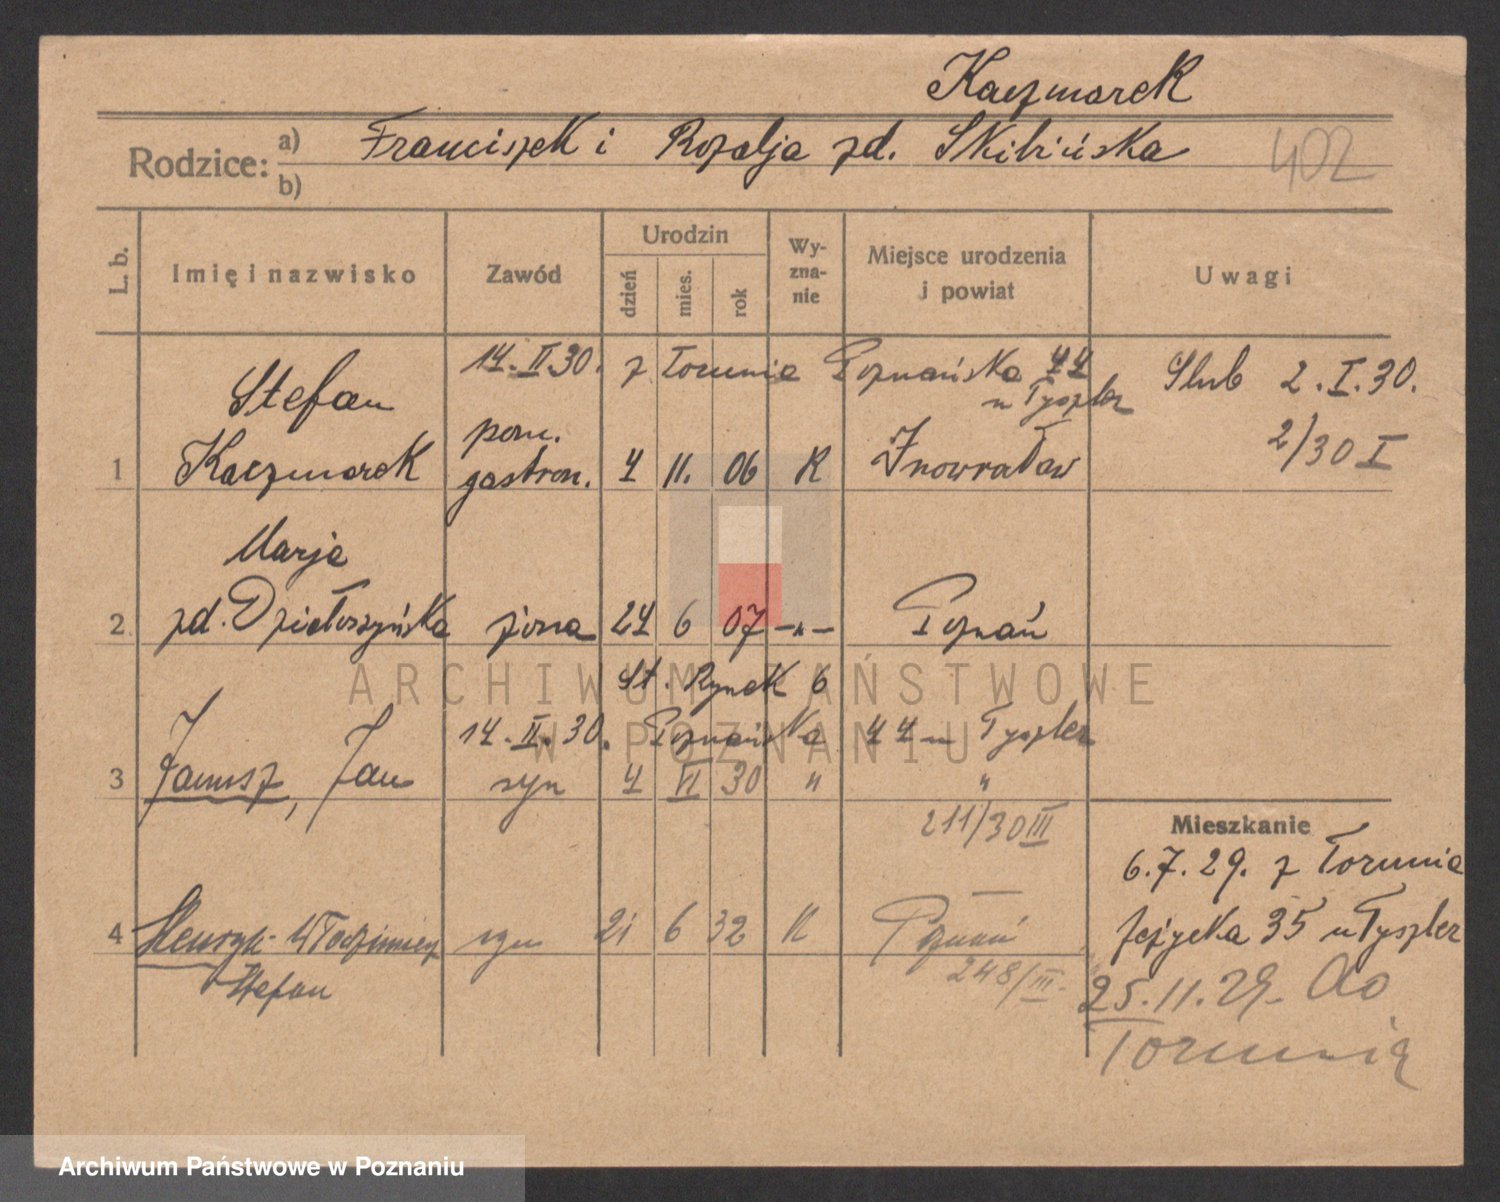 Kaczmarek
Rodzice: a) Franciszek i Rozalja zd. Skibińska
b)
402
L. b.
Imię i nazwisko
Zawód
Urodzin
dzień
mies.
rok
Wy-
zna-
nie
Miejsce urodzenia
i powiat
Uwagi
14.II.30. z Torunia Poznańska 44
u Tyszler
Ślub 2.I.30.
2/30 I
Stefan
pom.
1 Kaczmarek gastron. 4 11. 06 R Inowrocław
Marja
2 zd. Dzietoszyńska żona 24 6 07 -"- Poznań
St. Rynek 6
14.II.30. Poznańska 44 u Tyszler
3 Janusz, Jan syn 4 VI 30 " "
211/30 III
Mieszkanie
6.7.29. z Torunia
Jeżycka 35 u Tyszler
4 Henryk Włodzimierz syn 21 6 32 R Poznań
Stefan
248/III.
25.11.29. do
Torunia
ARCHIWUM PAŃSTWOWE
W POZNANIU
Archiwum Państwowe w Poznaniu